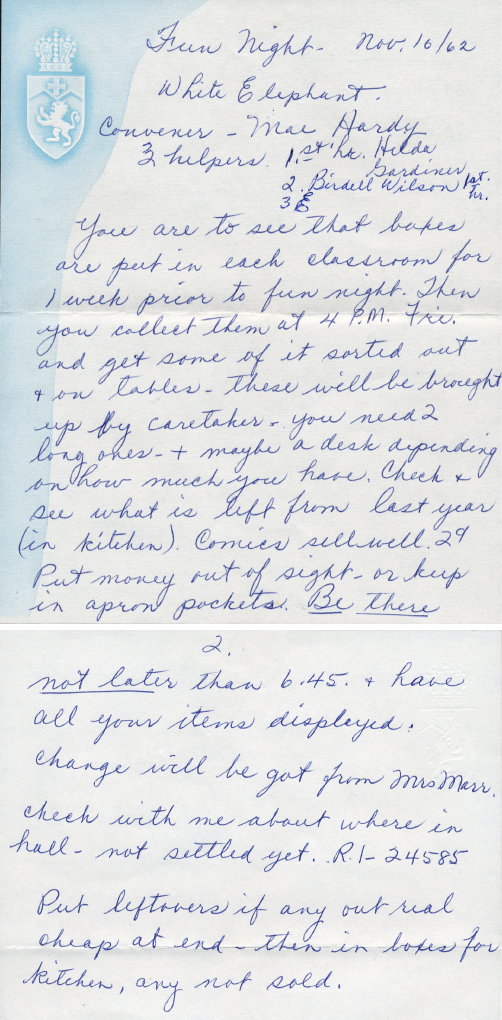 Fun Night - Nov. 16/62
White Elephant.
Convener - Mae Hardy
3 helpers. 1. 1st hr. Hilda
Gardiner
2. Birdell Wilson 1st.
hr.
3
You are to see that boxes
are put in each classroom for
1 week prior to fun night. Then
you collect them at 4 P.M. Fri.
and get some of it sorted out
+ on tables - these will be brought
up by caretaker - you need 2
long ones - + maybe a desk depending
on how much you have. Check +
see what is left from last year
(in kitchen). Comics sell well. 2¢
Put money out of sight - or keep
in apron pockets. Be there
2.
not later than 6.45. + have
all your items displayed.
Change will be got from Mrs Marr.
Check with me about where in
hall - not settled yet. R.1- 24585
Put leftovers if any out real
cheap at end - then in boxes for
kitchen, any not sold.